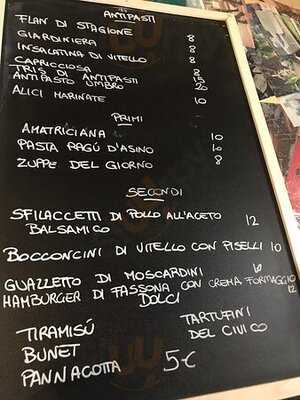 ANTIPASTI
FLAN DI STAGIONE 8
GIARDINIERA 8
INSALATINA DI VITELLO 8
CAPRICCIOSA 8
TRIS DI ANTIPASTI 15
ANTIPASTO UMBRO 20
ALICI MARINATE 10
PRIMI
AMATRICIANA 10
PASTA RAGÚ D'ASINO 10
ZUPPE DEL GIORNO 8
SECONDI
SFILACCETTI DI POLLO ALL'ACETO 12
BALSAMICO
BOCCONCINI DI VITELLO CON PISELLI 10
GUAZZETTO DI MOSCARDINI 10
HAMBURGER DI FASSONA CON CREMA FORMAGGIO 12
DOLCI
TIRAMISÚ
BUNET
PANNACOTTA 5€
TARTUFINI
DEL CIVICO